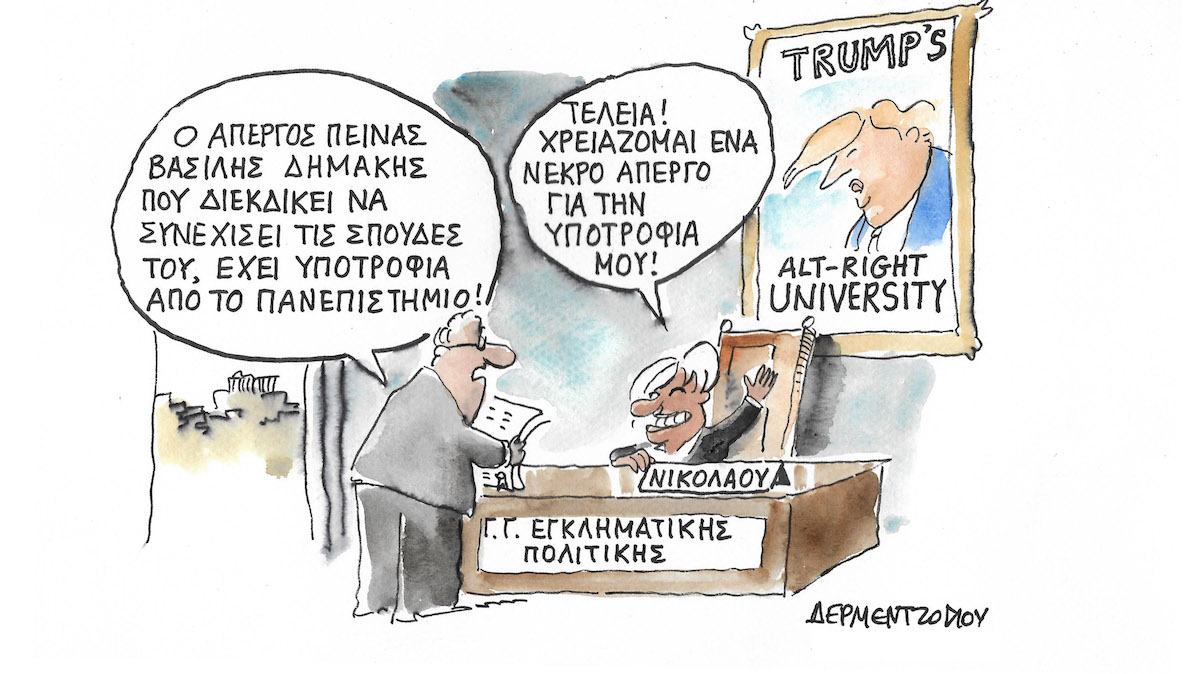 Ο ΑΠΕΡΓΟΣ ΠΕΙΝΑΣ
ΒΑΣΙΛΗΣ ΔΗΜΑΚΗΣ
ΠΟΥ ΔΙΕΚΔΙΚΕΙ ΝΑ
ΣΥΝΕΧΙΣΕΙ ΤΙΣ ΣΠΟΥΔΕΣ
ΤΟΥ, ΕΧΕΙ ΥΠΟΤΡΟΦΙΑ
ΑΠΟ ΤΟ ΠΑΝΕΠΙΣΤΗΜΙΟ!
ΤΕΛΕΙΑ!
ΧΡΕΙΑΖΟΜΑΙ ΕΝΑ
ΝΕΚΡΟ ΑΠΕΡΓΟ
ΓΙΑ ΤΗΝ
ΥΠΟΤΡΟΦΙΑ
ΜΟΥ!
TRUMP'S
ALT-RIGHT
UNIVERSITY
ΝΙΚΟΛΑΟΥ
Γ.Γ. ΕΓΚΛΗΜΑΤΙΚΗΣ
ΠΟΛΙΤΙΚΗΣ
ΔΕΡΜΕΝΤΖΟΓΛΟΥ